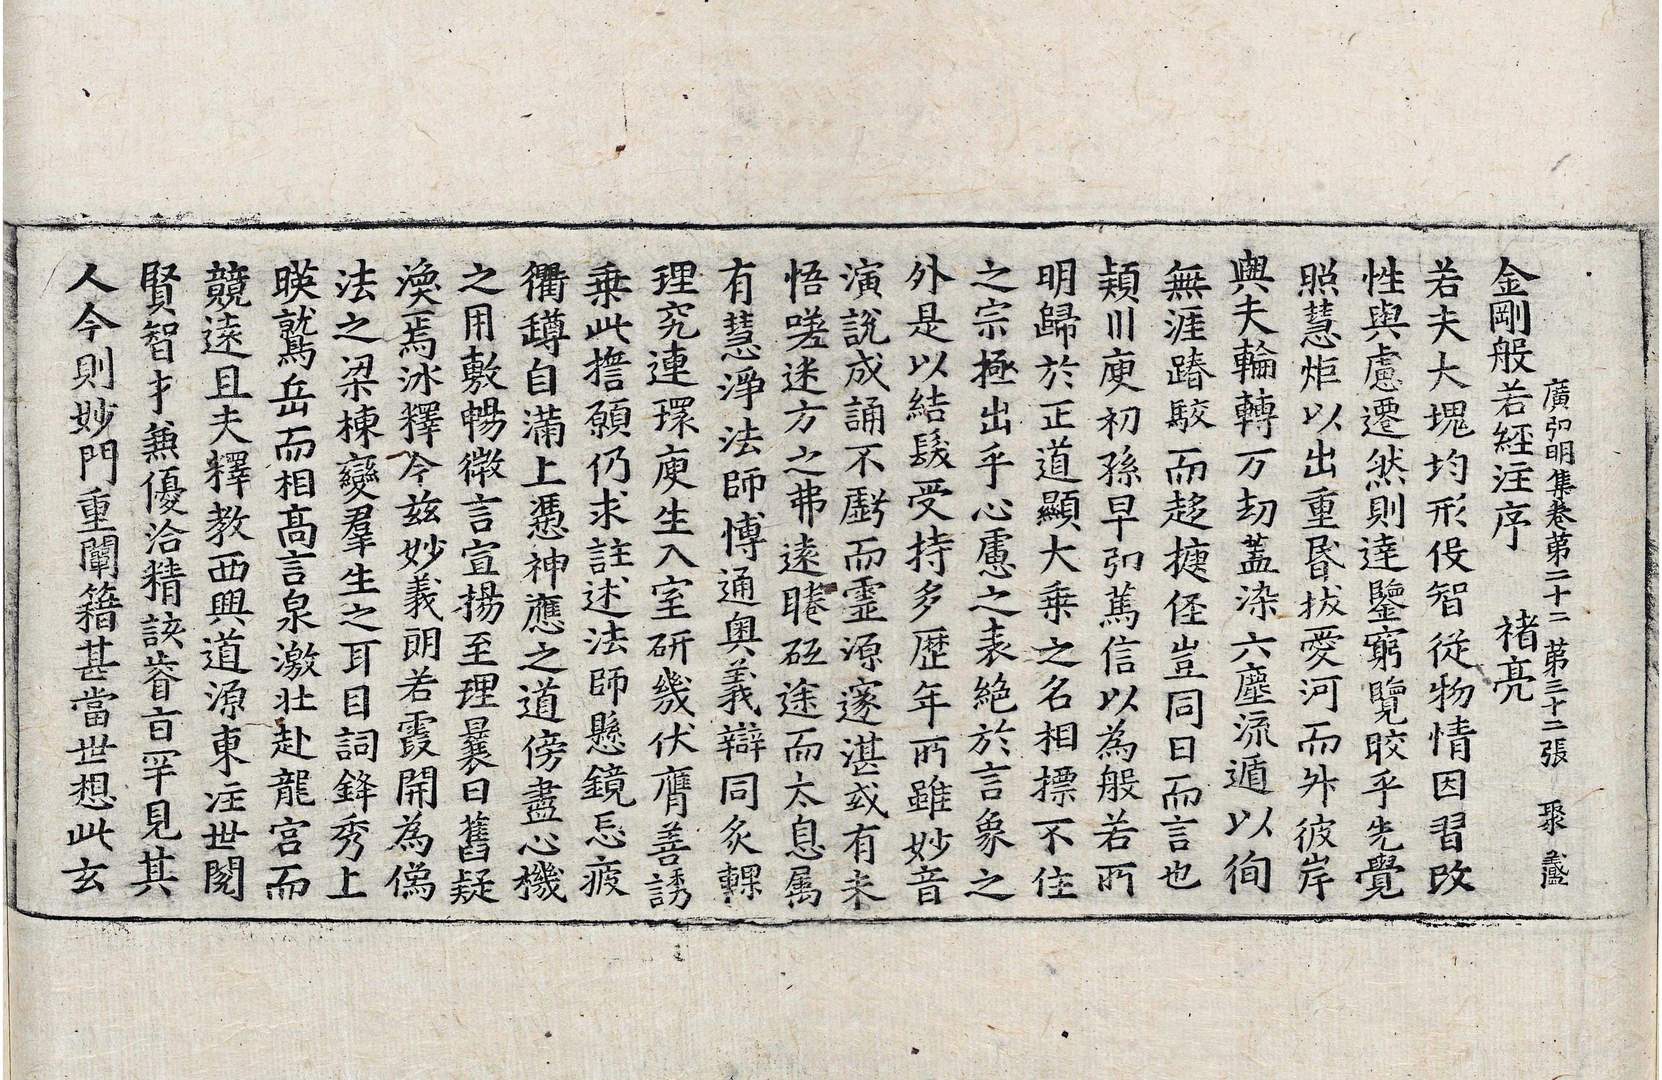 廣弘明集卷第二十二 第三十二張 聚 盛
金剛般若經注序 褚亮
若夫大塊均形伇智從物情因習改
性與慮遷然則逹鑒窮覽晈乎先覺
照慧炬以出重昏拔愛河而升彼岸
與夫輪轉万劫蓋染六塵流遁以徇
無涯踳駮而趍捷徑豈同日而言也
頴川庾初孫早弘篤信以為般若所
明歸於正道顯大乗之名相標不住
之宗極出乎心慮之表絶於言象之
外是以結髮受持多歴年所雖妙音
演說成誦不虧而靈源邃湛或有未
悟嗟迷方之弗遠睠砥途而太息属
有慧淨法師博通奥義辯同炙輠
理究連環庾生入室研幾伏膺善誘
乗此擔願仍求註述法師懸鏡忘疲
衢罇自滿上憑神應之道傍盡心機
之用敷暢微言宣揚至理曩日舊疑
渙焉冰釋今兹妙義朗若霞開為僞
法之梁棟變羣生之耳目詞鋒秀上
暎鷲岳而相髙言泉激壮赴龍宮而
競遠且夫釋教西興道源東注世閱
賢智才兼優洽精該睿旨罕見其
人今則妙門重闡籍甚當世想此玄